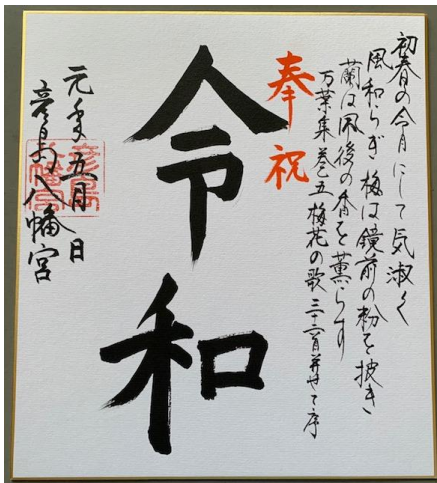 初春の令月にして気淑く
風和らぎ梅は鏡前の粉を披き
蘭は後の香を薫らす
万葉集巻五梅花の歌三十二首并せて序
奉祝
令和
元年五月 日
彦島八幡宮